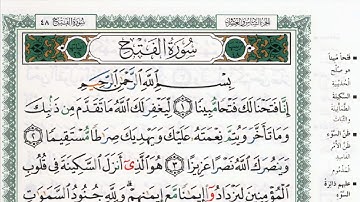 سُورَةُ الفَتْحِ ٤٨
الجزء السادس والعشرون
سُورَةُ الفَتْحِ
بِسْمِ اللَّهِ الرَّحْمَٰنِ الرَّحِيمِ
إِنَّا فَتَحْنَا لَكَ فَتْحًا مُّبِينًا ١ لِّيَغْفِرَ لَكَ اللَّهُ مَا تَقَدَّمَ مِن ذَنۢبِكَ
وَمَا تَأَخَّرَ وَيُتِمَّ نِعْمَتَهُۥ عَلَيْكَ وَيَهْدِيَكَ صِرَٰطًا مُّسْتَقِيمًا ٢
وَيَنصُرَكَ اللَّهُ نَصْرًا عَزِيزًا ٣ هُوَ الَّذِىٓ أَنزَلَ السَّكِينَةَ فِى قُلُوبِ
الْمُؤْمِنِينَ لِيَزْدَادُوٓا۟ إِيمَٰنًا مَّعَ إِيمَٰنِهِمْ ۗ وَلِلَّهِ جُنُودُ السَّمَٰوَٰتِ
فتحاً مبيناً
هو صلح
الحديبية
السكينة
ظن السوء